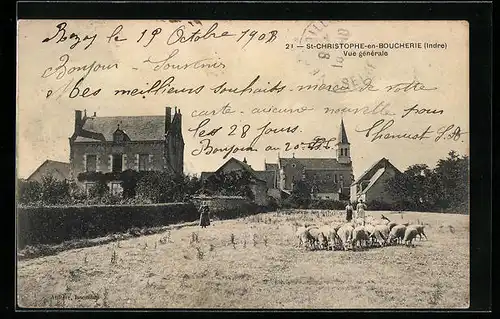 Rezay 19 Octobre 1908
21 - St-CHRISTOPHE-en-BOUCHERIE (Indre)
Vue générale
Bonjour Souvenirs
Mes meilleurs souhaits. merci de votre
carte. aucune nouvelle pour
les 28 jours.
Bonjour au 20